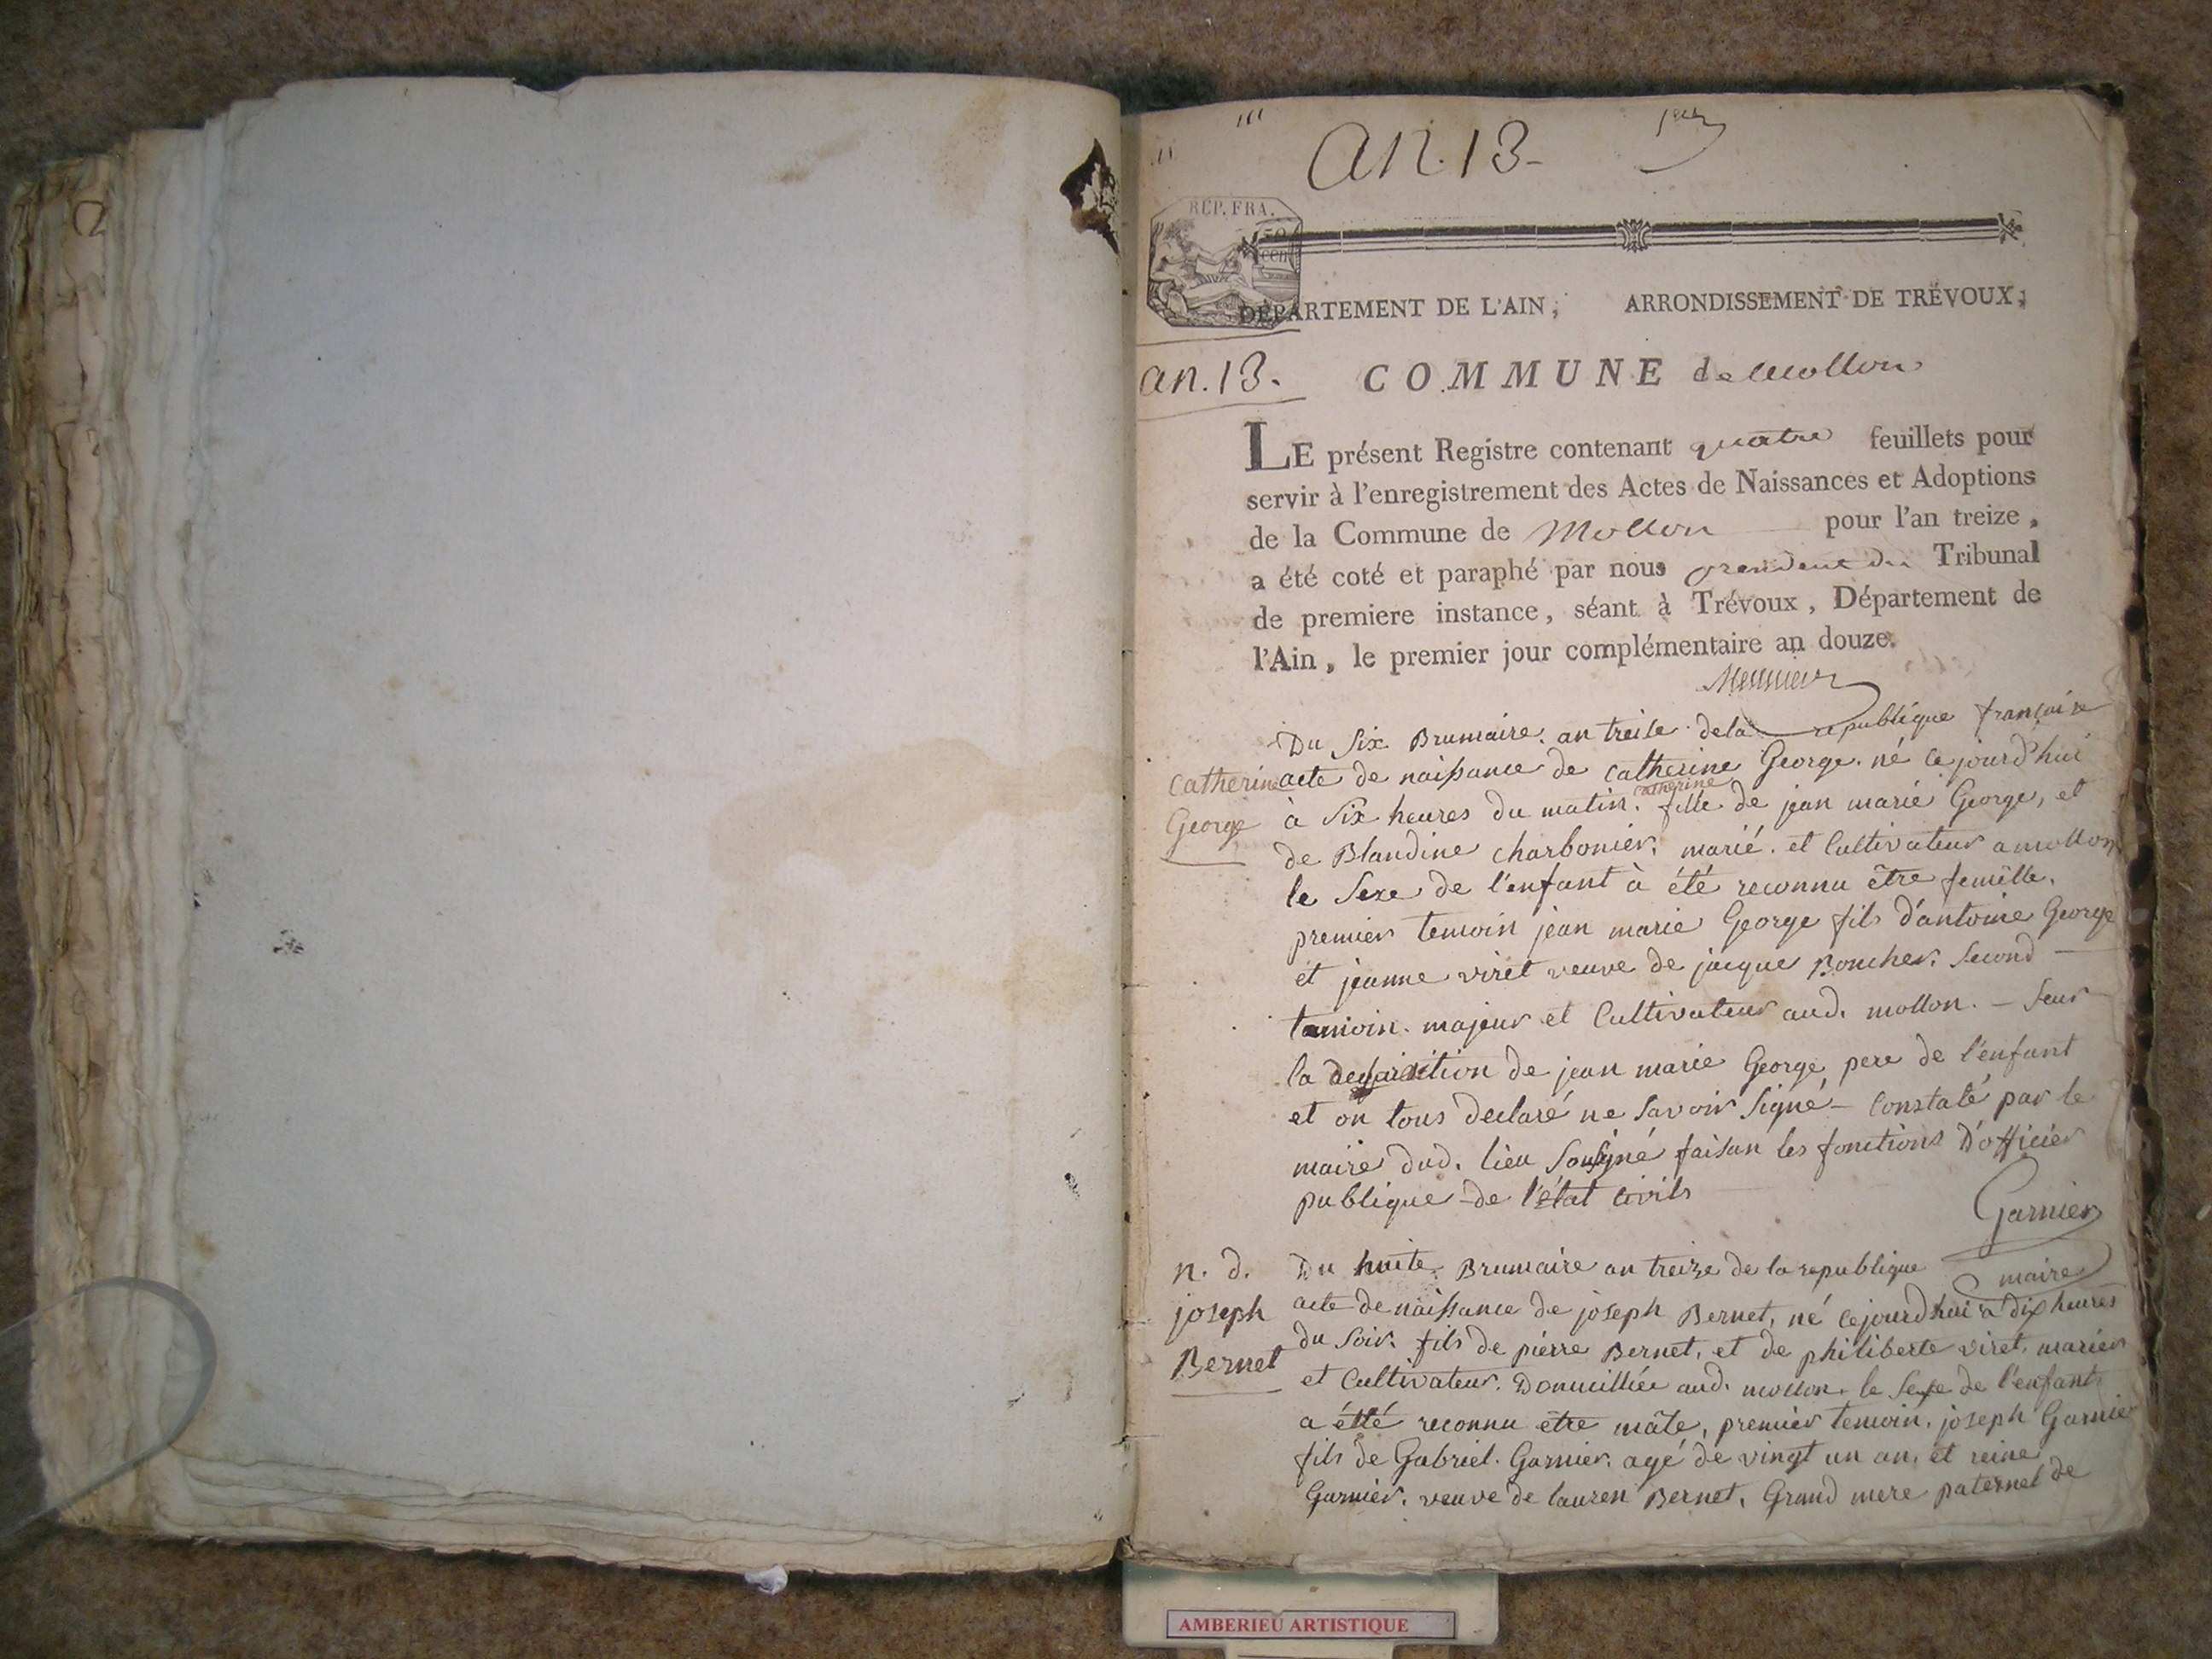 an. 13-
1er
REP. FRA.
50
cen
DÉPARTEMENT DE L'AIN; ARRONDISSEMENT DE TRÉVOUX;
an. 13.
COMMUNE de Mollon
LE présent Registre contenant quatre feuillets pour
servir à l'enregistrement des Actes de Naissances et Adoptions
de la Commune de Mollon pour l'an treize,
a été coté et paraphé par nous president du Tribunal
de premiere instance, séant à Trévoux, Département de
l'Ain, le premier jour complémentaire an douze.
Du six Brumaire. an treise dela republique françaire
Catherine
George
acte de naissance de catherine George. né cejourd'hui
à six heures du matin. catherine fille de jean marie George, et
de Blandine charbonier. marié. et Cultivateur a mollon
le Sexe de l'enfant à été reconnu être femélle.
premier temoin jean marie George fils d'antoine George
et jeanne viret veuve de jacque Boucher. Second
temoin. majeur et Cultivateur aud. mollon. - Seur
la de jean marie George pere de l'enfant
et on tous declaré ne Savoir Signé - Constaté par le
maire dud. lieu Sousigné faisan les fonctions D'officier
publique de l'état civils
Garnier
maire
n. d.
joseph
Bernet
Du huite Brumaire an treize de la republique
acte de naissance de joseph Bernet, né cejourd'hui a dix heures
du soir. fils de pierre Bernet, et de philiberte viret. mariés
et Cultivateur. Domicilliée aud. mollon. le Sexe de l'enfant
a étté reconnu etre mâle, premier temoin. joseph Garnier
fils de Gabriel. Garnier. agé de vingt un an. et reine
Garnier. veuve de lauren Bernet, Grand mere paternel de
AMBERIEU ARTISTIQUE